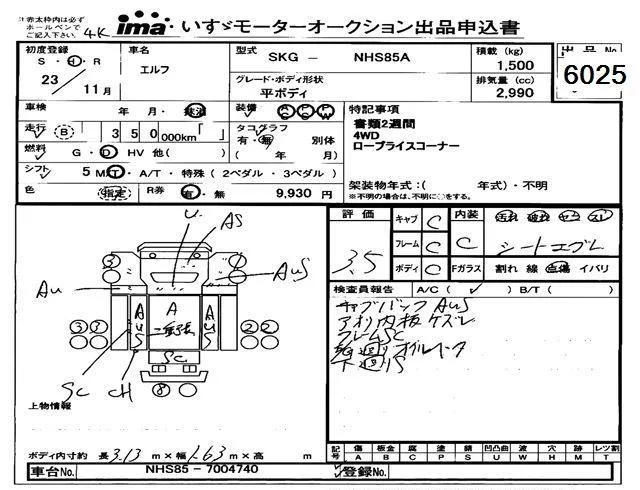 ※赤太枠内は必ず
ボールペンで
ご記入下さい.
4K
ima いすゞモーターオークション出品申込書
初度登録
S・H・R
23 11月
車名
エルフ
型式
SKG - NHS85A
グレード・ボディ形状
平ボディ
積載 (kg)
1,500
排気量 (cc)
2,990
出品No
6025
車検 年 月・抹消
装備 AC PS PW
走行 (B) 350000km「 」
タコグラフ
有・無 別体
( 年 月)
燃料 G・D HV 他( )
シフト 5 MT・A/T・特殊(2ペダル・3ペダル)
色 指定 R券 有・無 9,930 円
特記事項
書類2週間
4WD
ロープライスコーナー
架装物年式:( 年式)・不明
※不明の場合は、不明に○をする。
評価
3.5
キャブ C
フレーム C
ボディ C
内装 C
汚れ 破れ ヤニ スレ
シートコゲレ
Fガラス 割れ 線 点傷 イバリ
検査員報告 A/C( ✓ ) B/T( )
キャブバック AuS
アオリ内板 ケズレ
フレームSC
下廻りS
U. AS
AuS
Au
A
二重張
AuS
AuS
3 3 2 2
SC
SC CH
8
上物情報
ボディ内寸約 長 3.13 m×幅 1.63 m×高 m
記号 傷 板金 腐 塗 錆 凹凸曲 波 穴 跡 レツ割
A B C P S U W H M T
車台No. NHS85 - 7004740
登録No.